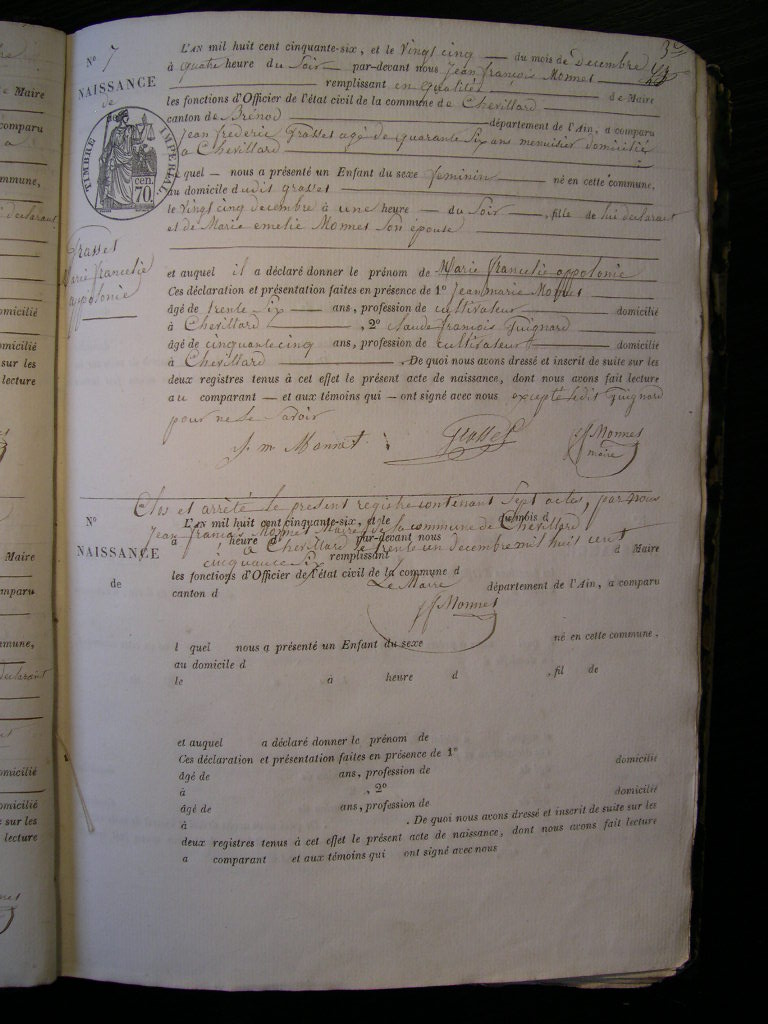 3e
N° 7
NAISSANCE
de
TIMBRE IMPÉRIAL
70 cen.
Grasset
Marie francelie
appolonie
L'AN mil huit cent cinquante-six, et le Vingt cinq du mois de Decembre
à quatre heure du Soir par-devant nous Jean françois Monnet
remplissant en qualité de Maire
les fonctions d'Officier de l'état civil de la commune de Chevillard
canton de Brénod département de l'Ain, a comparu
Jean frederic Grasset agé de quarante Six ans menuisier domicilié
a Chevillard
l quel nous a présenté un Enfant du sexe feminin né en cette commune,
au domicile dudit grasset
le Vingt cinq decembre à une heure du Soir, fille de lui declarant
et de Marie emelie Monnet Son épouse
et auquel il a déclaré donner le prénom de Marie francelie appolonie
Ces déclaration et présentation faites en présence de 1° Jean marie Monnet
âgé de trente Six ans, profession de cultivateur domicilié
à Chevillard , 2° claude françois Guignard
âgé de cinquante cinq ans, profession de cultivateur domicilié
à Chevillard . De quoi nous avons dressé et inscrit de suite sur les
deux registres tenus à cet effet le présent acte de naissance, dont nous avons fait lecture
au comparant et aux témoins qui ont signé avec nous excepté ledit Guignard
pour ne le savoir
J. m Monnet Grasset Jf Monnet
maire
Clos et arrêté le present registre contenant Sept actes, par nous
N° L'AN mil huit cent cinquante-six, et le du mois d
Jean françois Monnet Maire de la commune de Chevillard
NAISSANCE à heure d par-devant nous
a Chevillard le trente un decembre mil huit cent
remplissant d Maire
cinquante Six
de les fonctions d'Officier de l'état civil de la commune d
Le Maire
canton d département de l'Ain, a comparu
Jf Monnet
l quel nous a présenté un Enfant du sexe né en cette commune,
au domicile d
le à heure d , fil de
et auquel a déclaré donner le prénom de
Ces déclaration et présentation faites en présence de 1°
âgé de ans, profession de domicilié
à , 2°
âgé de ans, profession de domicilié
à . De quoi nous avons dressé et inscrit de suite sur les
deux registres tenus à cet effet le présent acte de naissance, dont nous avons fait lecture
a comparant et aux témoins qui ont signé avec nous